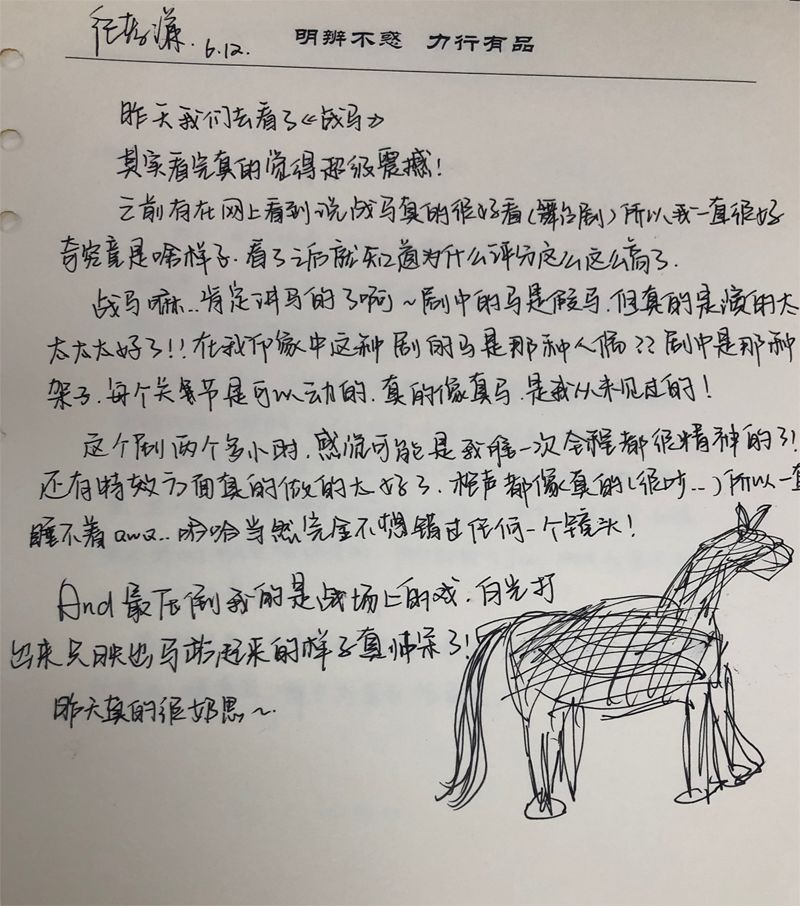 任 谦. 6.12. 明辨不惑 力行有品
昨天我们去看了《战马》
其实看完真的觉得超级震撼!
之前有在网上看到说战马真的很好看(舞台剧)所以我一直很好
奇究竟是啥样子.看了之后就知道为什么评分这么这么高了.
战马嘛..肯定讲马的了啊~剧中的马是假马.但真的是演的太
太太太好了!!在我印象中这种剧的马是那种人偶??剧中是那种
架子.每个关节是可以动的.真的像真马.是我从来没见过的!
这个剧两个多小时.感觉可能是我唯一次全程都很精神的了!
还有特效方面真的做的太好了.枪声都像真的(很吵..)所以一直
睡不着awa..哈哈当然完全不想错过任何一个镜头!
And 最压倒我的是战场上的戏.白光打
出来只映出马站起来的样子真帅呆了!
昨天真的很奶思~.